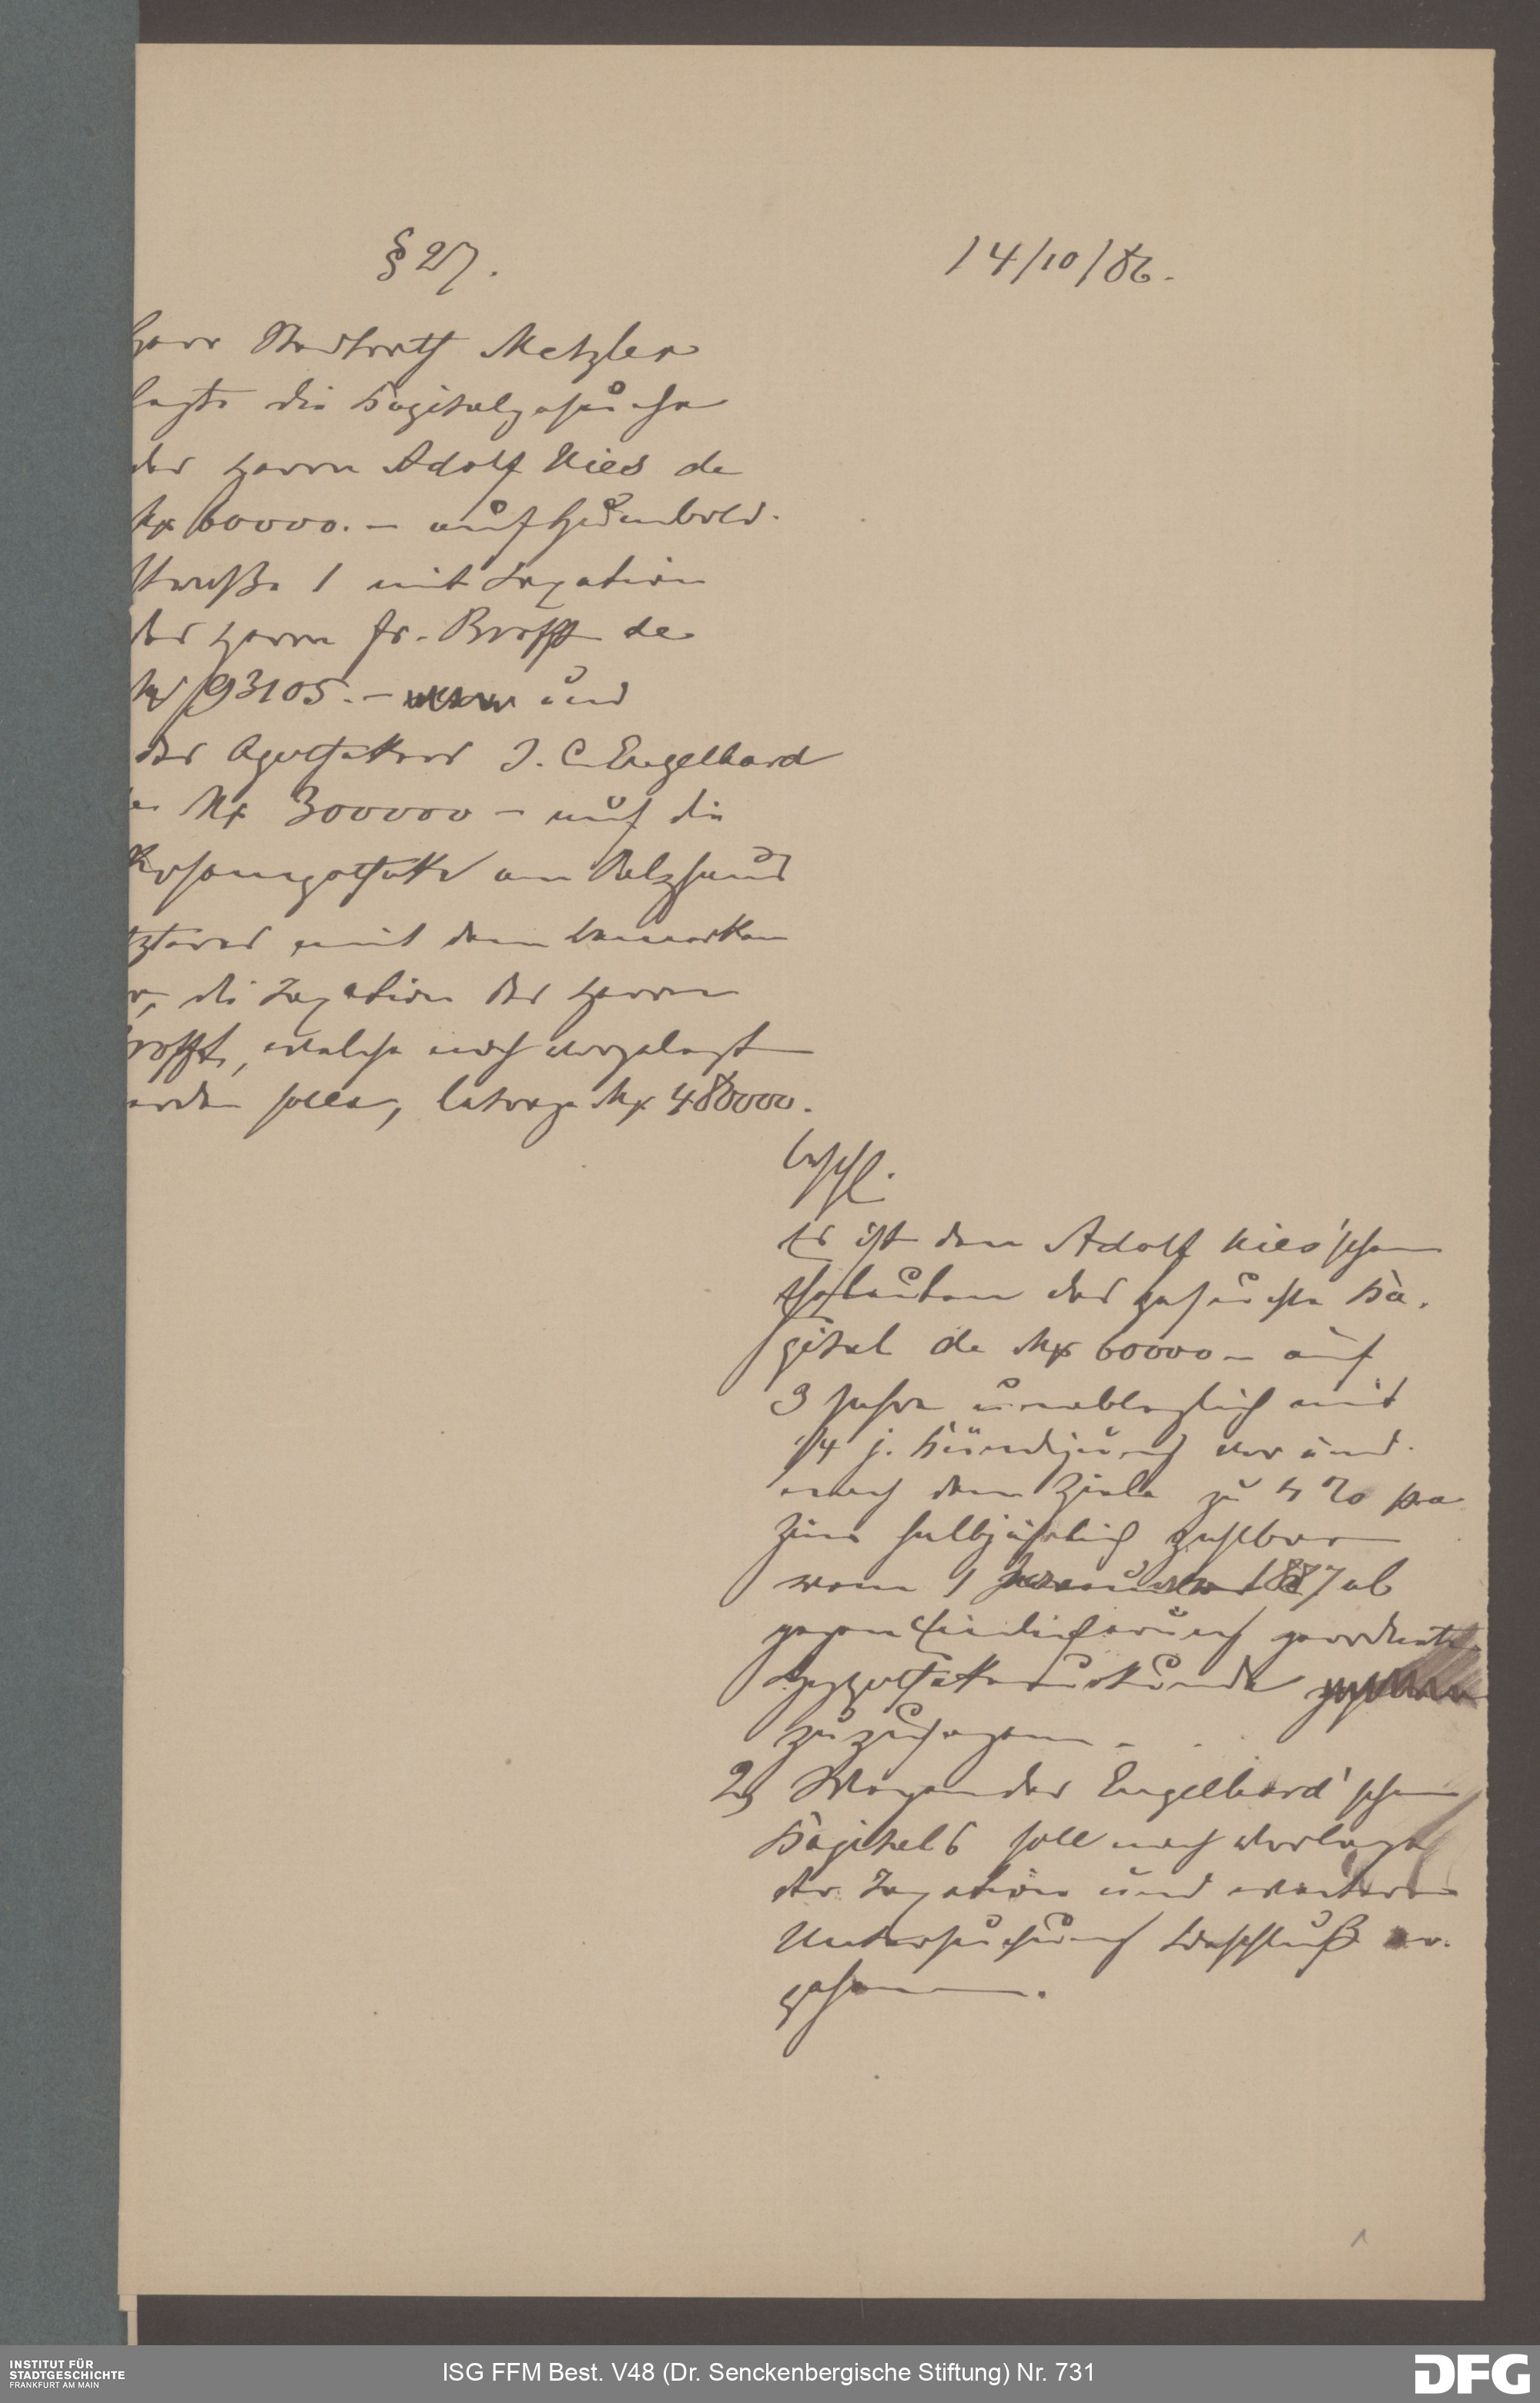 § 27.
14/10/86.
Herr Stadtrath Metzler
legte die Kapitalgesuche
des Herrn Adolf Kies de
Mk 60000.– auf Humbold-
straße 1 mit Taxation
des Herrn Fr. Brofft de
M 93105.– und
des Apothekers J. C. Engelhard
de Mk 300000 – auf die
Rosenapotheke am Salzhaus
tzteres mit dem bemerken
die Taxation des Herrn
rofft, welche noch vorgelegt
erden solle, betrage Mk 480000.
beschl.
Es ist den Adolf Kies'schen
Eheleuten das gesuchte Ka-
pital de Mk 60000 – auf
3 Jahre unableglich mit
1/4 j. Kündigung vor und
nach dem Ziele zu 4 % pa
Zins halbjährlich zahlbar
vom 1 Januar 1887 ab
gegen Einlieferung geordneter
Hypothekenurkunde
zuzusagen.
2, Wegen des Engelhard'schen
Kapitals soll nach Vorlage
der Taxation und weiterer
Untersuchung Beschluß er-
gehen.
1
INSTITUT FÜR
STADTGESCHICHTE
FRANKFURT AM MAIN
ISG FFM Best. V48 (Dr. Senckenbergische Stiftung) Nr. 731
DFG